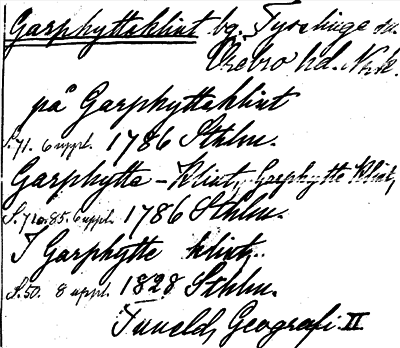 Garphytteklint bg. Tysslinge sn.
Örebro hd. Nrk.
på Garphytteklint
S. 71. 6 uppl. 1786 Sthlm.
Garphytte-Klint, Garphytte Klint,
S. 71 o. 85. 6 uppl. 1786 Sthlm.
I Garphytte klint,
S. 50. 8 uppl. 1828 Sthlm.
Tuneld, Geografi II